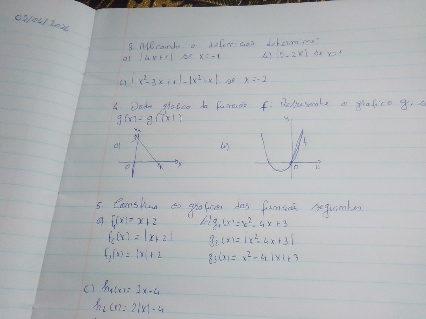 02/04/2026
3. Aplicando a definição determine:
a) |4x+1| se x=-1 b) |5-2x| se x<1
c) |x²-3x+1|-|x²-x| se x=-2
4. Dado gráfico da função f. Represente o gráfico g,
g(x)= |f(x)|
a) b)
0 x
0 x
5. Construa os gráficos das funções seguintes
a) f₁(x)=x+2 b) g₁(x)=x²-4x+3
f₂(x)=|x+2| g₂(x)=|x²-4x+3|
f₃(x)=|x|+2 g₃(x)=x²-4.|x|+3
c) h₁(x)=2x-4
h₂(x)=2|x|-4